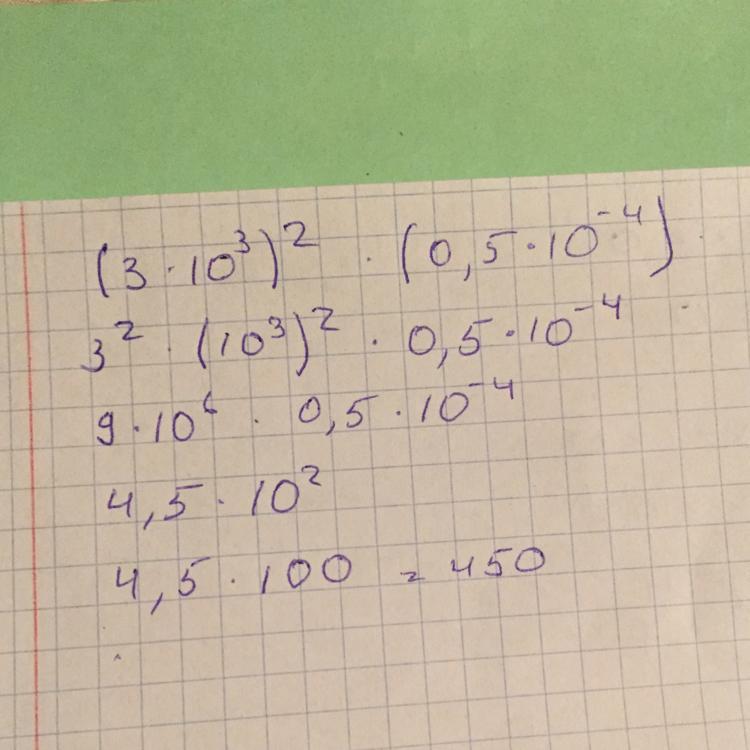 (3 · 10³)² · (0,5 · 10⁻⁴)
3² · (10³)² · 0,5 · 10⁻⁴
9 · 10⁶ · 0,5 · 10⁻⁴
4,5 · 10²
4,5 · 100 = 450